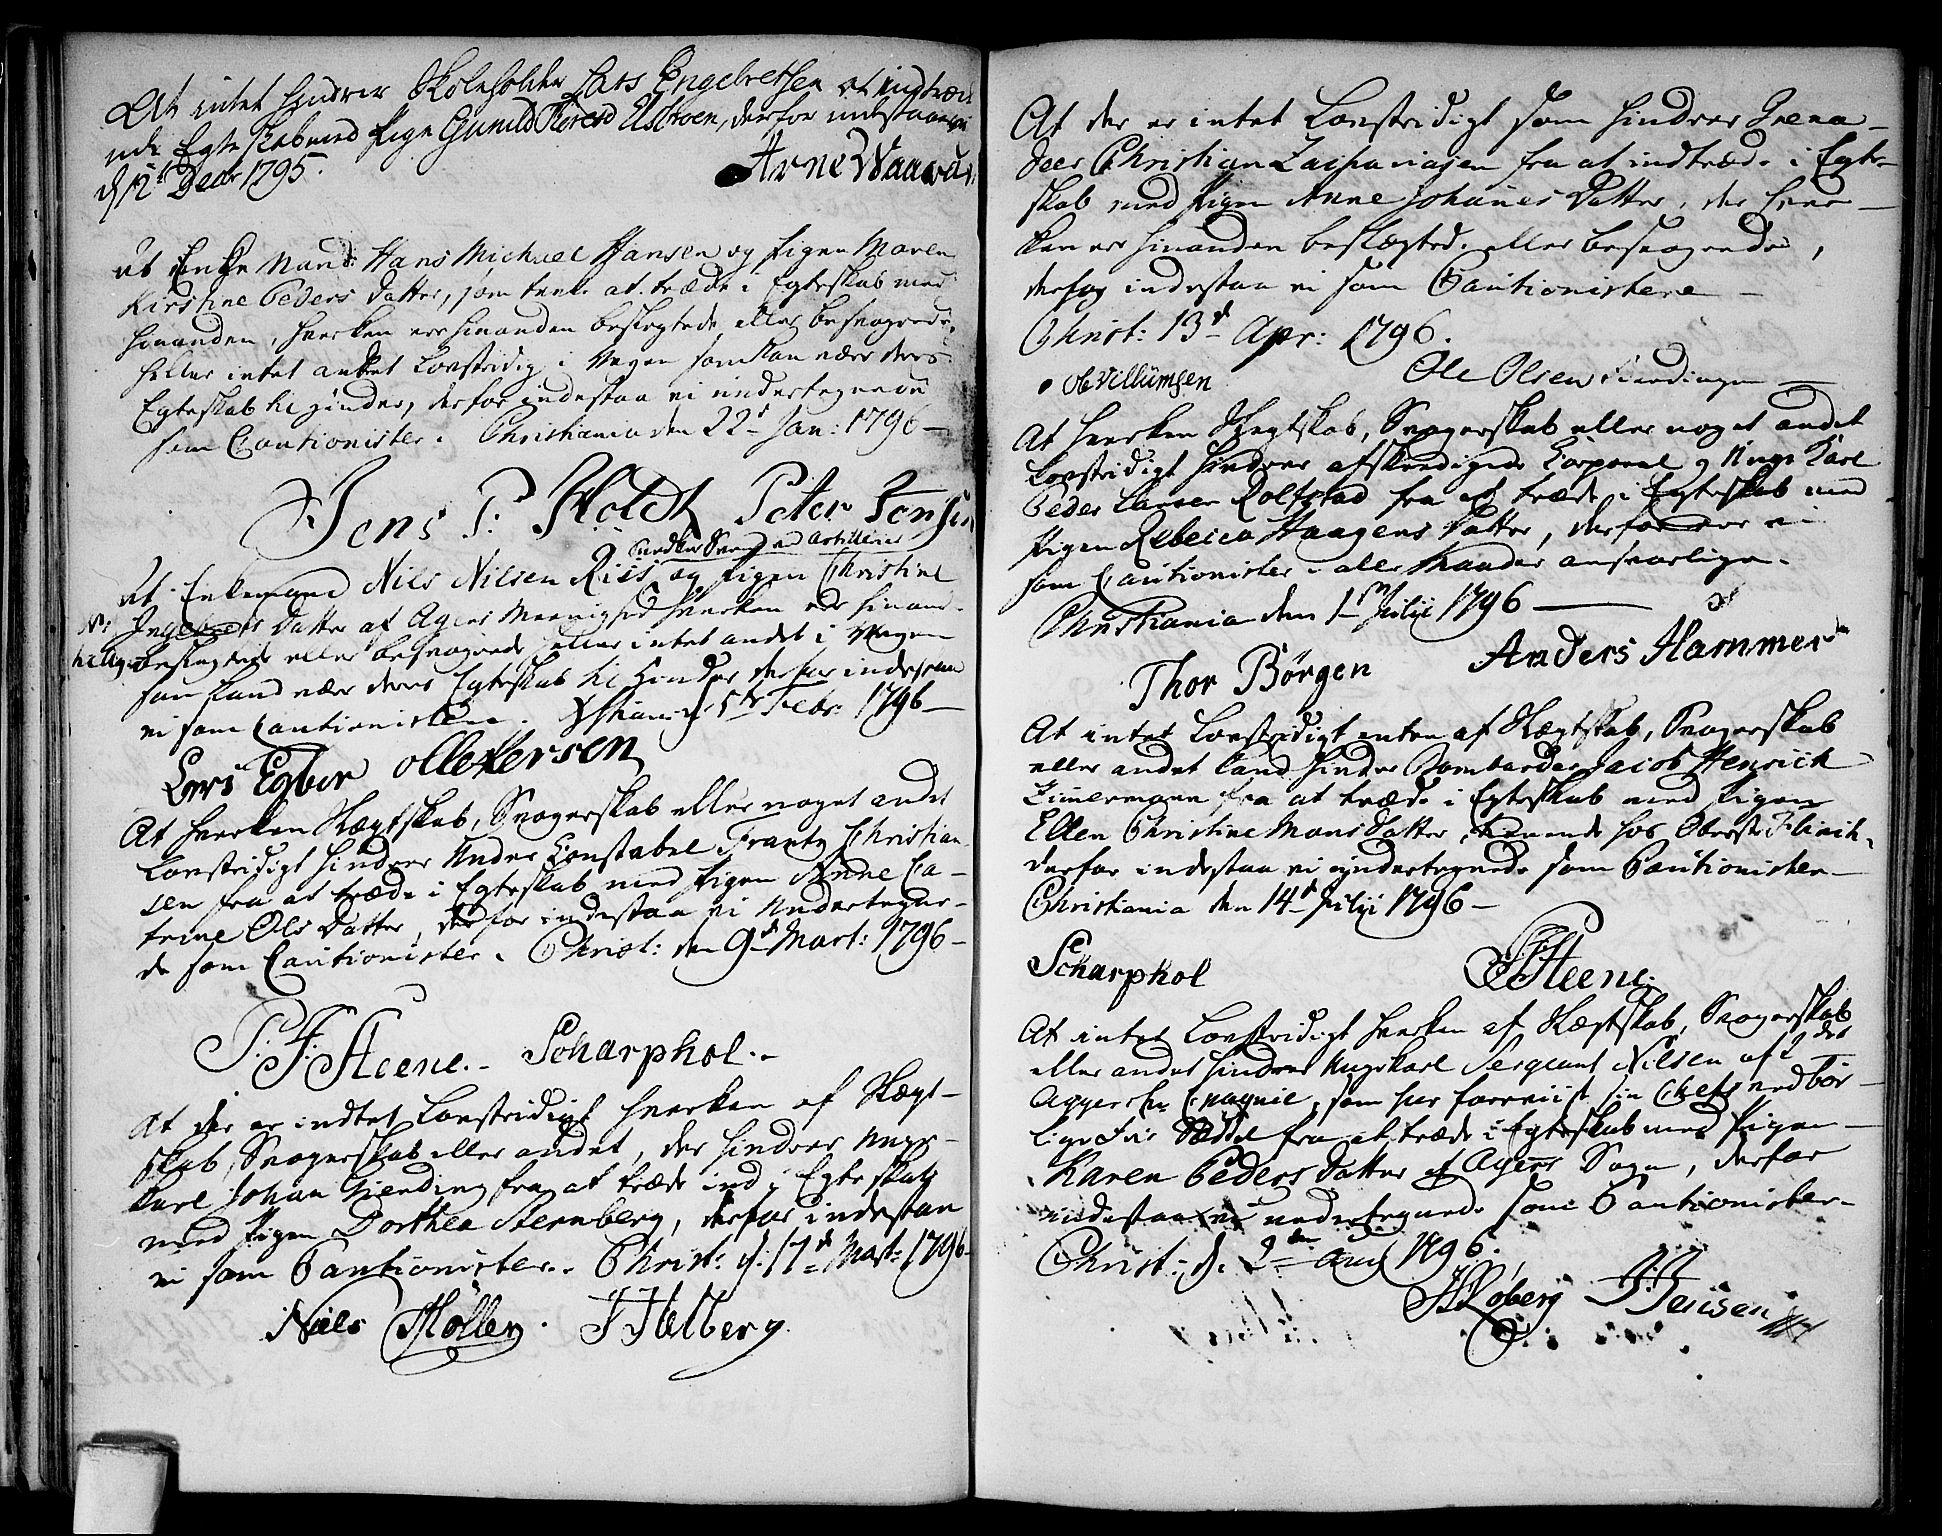 At intet hindrer Skoleholder Lars Engebretsen at indtræ
ude Egteskab med Pige Gunild Elstoen, derfor indestaaer
d 12t Decbr 1795.
Arne Waa
At Enke Mand Hans Michael Hansen og Pigen Maren
Kirstine Peders Datter, som tænke at træde i Egteskab med
hinanden, hverken ere hinanden beslegtede eller besvogrede,
heller intet andet Lovstridig i Vegen som kan være deres
Egteskab til hinder, derfor indestaa vi undertegnede
som Cautionister. Christiania den 22d Jan: 1796 –
Jens P: Holdt Peter Jensen
Snedker Svend ved Artilleriet
At Enkemand Nils Nilsen Riis og Pigen Christine
Ingebrets Datter af Agers Meenighed hverken ere hinan-
beslegtede eller besvogrede heller intet andet i Vegen
som kand være deres Egteskab til Hinder derfor indestaa
vi som Cautionistere. Xstiania d 5te Febr: 1796 –
Lars Egbor Olle Versen
At hverken Slægtskab, Svogerskab eller noget andet
Lovstridigt hindrer Under Constabel Frantz Christian-
sen fra at træde i Egteskab med Pigen Anne Ca-
trine Ols Datter, derfor indestaa vi Undertegne-
de som Cautionister. Christ: den 9d Mart: 1796 –
P: J: Steene.- Scharphol.-
At der er indtet Lovstridigt hverken af Slægt-
skab, Svogerskab eller andet, der hindrer Unge-
karl Johan Wending fra at træde ind i Egteskab
med Pigen Dorthea Sternberg, derfor indestaa
vi som Cautionister. Christ: d: 17d Mart: 1796 –
Niels Møller. J Helberg.
At der er intet Lovstridigt som hindrer Grena-
deer Christian Zachariasen fra at indtræde i Egte-
skab med Pigen Anne Johanes Datter, der hver-
ken er hinanden beslægtede eller besvogrede,
derfor indestaa vi som Cautionistere –
Christ: 13d Apr: 1796.
Ole Villumsen Ole Olsen
At hverken Slegtskab, Svogerskab eller noget andet
Lovstridigt hindrer afskedigede Corporal og Unge Karl
Peder Larsen Rolfstad fra at træde i Egteskab med
Pigen Rebecca Haagens Datter, derfor ere vi
som Cautionister i alle Maader ansvarlige.
Christiania den 1ste Julii 1796 –
Thor Börgen Anders Hammer
At intet Lovstridigt enten af Slægtskab, Svogerskab
eller andet kand hindre Bombardeer Jacob Henrich
Zimermann fra at træde i Egteskab med Pigen
Ellen Christine Mons Datter, tienende hos Oberste
derfor indestaa vi undertegnede som Cautionister –
Christiania den 14d Julii 1796 –
Scharphol PJSteene.
At intet Lovstridigt hverken af Slægtskab, Svogerskab
eller andet hindrer Ungekarl Sergeant Nilsen af 2det
Aggersh: Compagnie, som har foreviist sin Chefs ved bør-
lige Frie Sæddel fra at træde i Egteskab med Pigen –
Karen Peders Datter af Agers Sogn, derfor
indestaa vi undertegnede som Cautionister –
Christ: d. 2den Aug 1796.